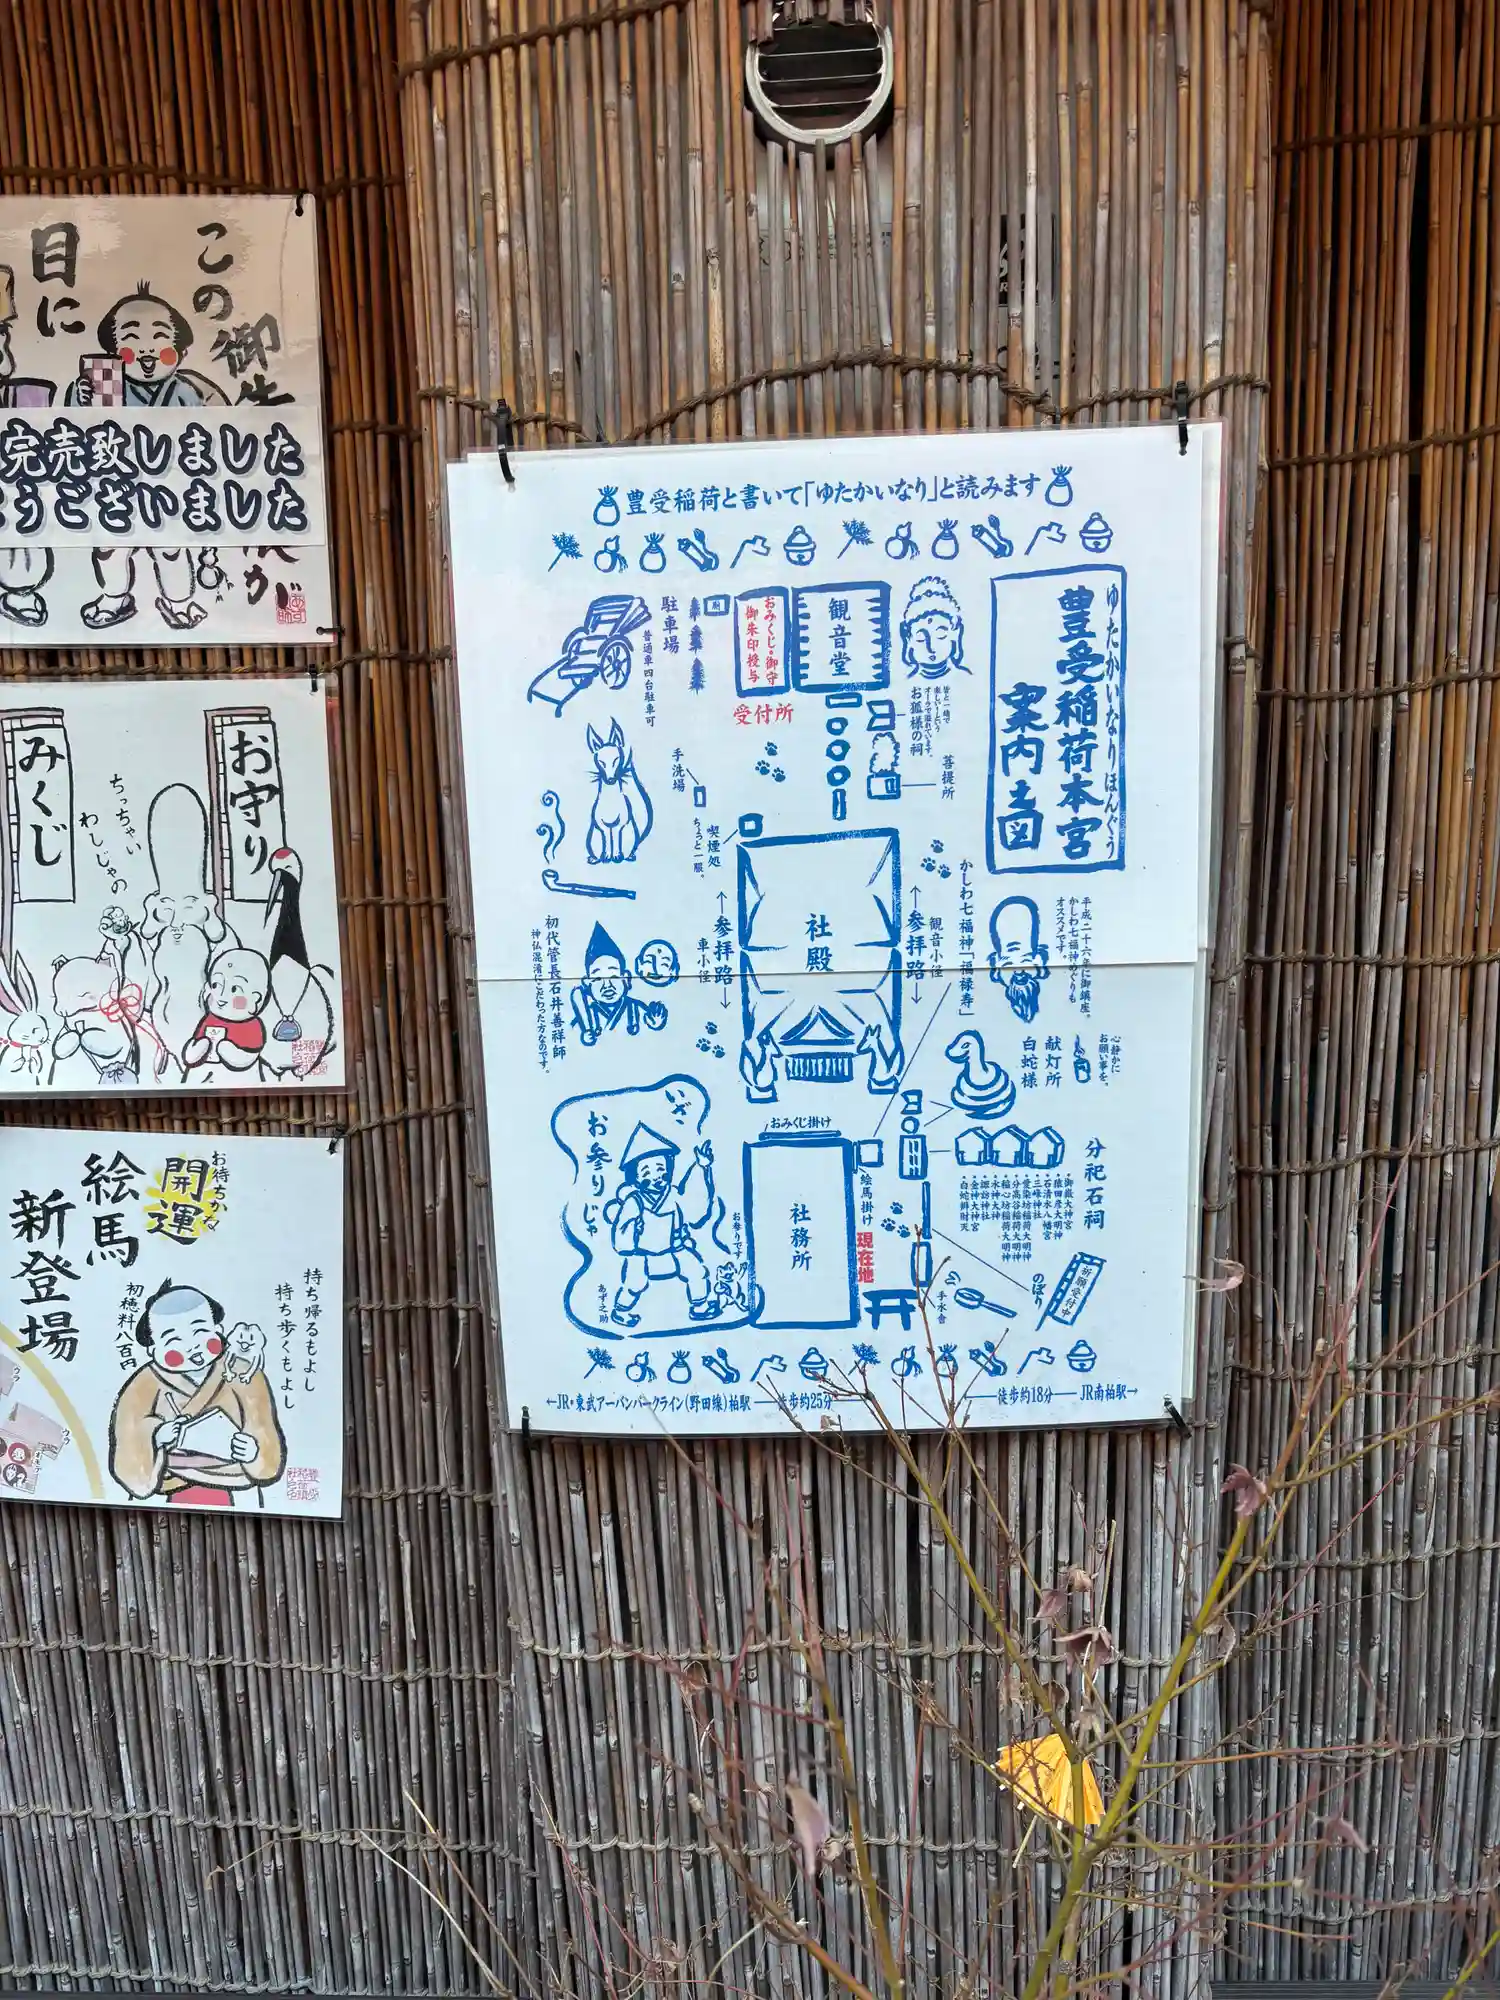 この御朱
目に
完売致しました
うございました
お守り
みくじ
ちっちゃい
わしじゃの
お待ちかね
開運
絵馬
新登場
初穂料八百円
持ち帰るもよし
持ち歩くもよし
ウラ
ウラ
オモテ
豊受稲荷と書いて「ゆたかいなり」と読みます
ゆたかいなりほんぐう
豊受稲荷本宮
案内之図
観音堂
おみくじ・御守
御朱印授与
受付所
駐車場
普通車四台駐車可
お狐様の祠
皆と一緒で
楽しい!という
オーラで溢れています。
菩提所
手洗場
喫煙処
ちょっと一服。
社殿
←参拝路→
車小径
←参拝路→
観音小径
かしわ七福神「福禄寿」
平成二十六年に御鎮座。
かしわ七福神めぐりも
オススメです。
初代管長石井善祥師
神仏混淆にこだわった方なのです。
心静かに
お願い事を。
献灯所
白蛇様
おみくじ掛け
社務所
絵馬掛け
現在地
分祀石祠
・御嶽大神宮
・猿田彦大明神
・石清水八幡宮
・三峰神社
・愛染坊稲荷大明神
・分高谷稲荷大明神
・稲心坊稲荷大明神
・水神大神
・諏訪神社
・金神大神宮
・白蛇辨財天
いざ、
お参りじゃ
お参りです
あず之助
のぼり
祈願受付中
手水舎
←JR・東武アーバンパークライン(野田線)柏駅 ── 徒歩約25分
徒歩約18分 ── JR南柏駅→